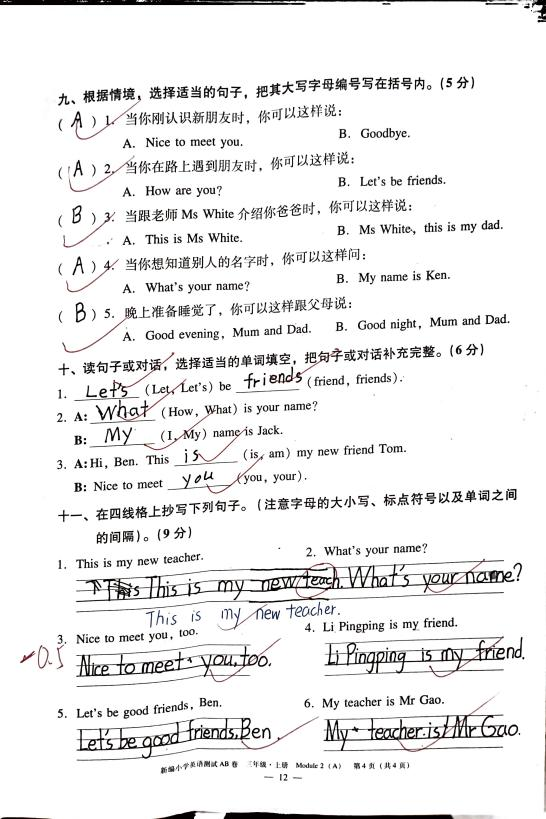 九、根据情境，选择适当的句子，把其大写字母编号写在括号内。(5分)
( A ) 1. 当你刚认识新朋友时，你可以这样说：
A. Nice to meet you. B. Goodbye.
( A ) 2. 当你在路上遇到朋友时，你可以这样说：
A. How are you? B. Let's be friends.
( B ) 3. 当跟老师 Ms White 介绍你爸爸时，你可以这样说：
A. This is Ms White. B. Ms White, this is my dad.
( A ) 4. 当你想知道别人的名字时，你可以这样问：
A. What's your name? B. My name is Ken.
( B ) 5. 晚上准备睡觉了，你可以这样跟父母说：
A. Good evening, Mum and Dad. B. Good night, Mum and Dad.
十、读句子或对话，选择适当的单词填空，把句子或对话补充完整。(6分)
1. Let's (Let, Let's) be friends (friend, friends).
2. A: What (How, What) is your name?
B: My (I, My) name is Jack.
3. A: Hi, Ben. This is (is, am) my new friend Tom.
B: Nice to meet you (you, your).
十一、在四线格上抄写下列句子。(注意字母的大小写、标点符号以及单词之间
的间隔)。(9分)
1. This is my new teacher. 2. What's your name?
This is my new teach. What's your name?
This is my new teacher.
3. Nice to meet you, too. 4. Li Pingping is my friend.
-0.5 Nice to meet you, too. Li Pingping is my friend.
5. Let's be good friends, Ben. 6. My teacher is Mr Gao.
Let's be good friends, Ben. My teacher is Mr Gao.
新编小学英语测试AB卷 三年级·上册 Module 2 (A) 第4页 (共4页)
— 12 —